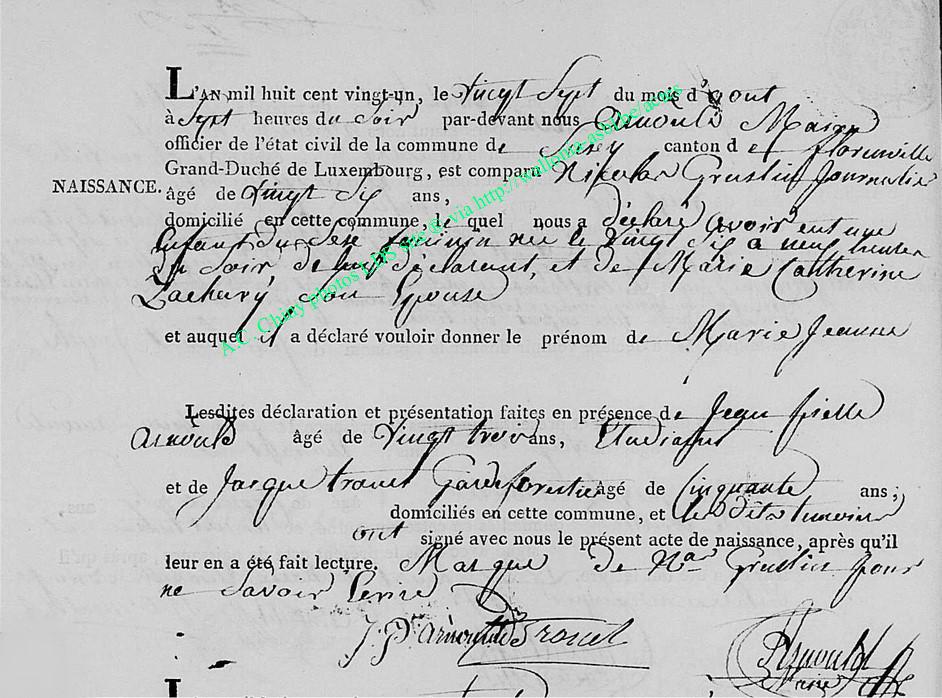 L'AN mil huit cent vingt-un, le vingt Sept du mois d'aout
à Sept heures du Soir par-devant nous Arnould Maire
officier de l'état civil de la commune de canton de florenville
Grand-Duché de Luxembourg, est comparu Nikolas Grustin Journalié
NAISSANCE.
âgé de vingt Six ans,
domicilié en cette commune, lequel nous a déclaré avoir eut une
Enfant du Sexe feminin née le vingt Six a neuf heures
du Soir de luy déclarent, et de Marie Catherine
Zachary son Epouse
et auquel il a déclaré vouloir donner le prénom de Marie Jeanne
Lesdites déclaration et présentation faites en présence de Jean pierre
Arnould âgé de vingt trois ans, Etudiant
et de Jacque trouet Garde forestie âgé de Cinquante ans;
domiciliés en cette commune, et les dits temoins
ont signé avec nous le présent acte de naissance, après qu'il
leur en a été fait lecture. Marque de Nas Grustin pour
ne Savoir Ecrire
J. P. Arnould Trouet
Arnould
Maire
A.C. Chiny photos LDS Site © via http://wallonia-asbl.be/actes
L